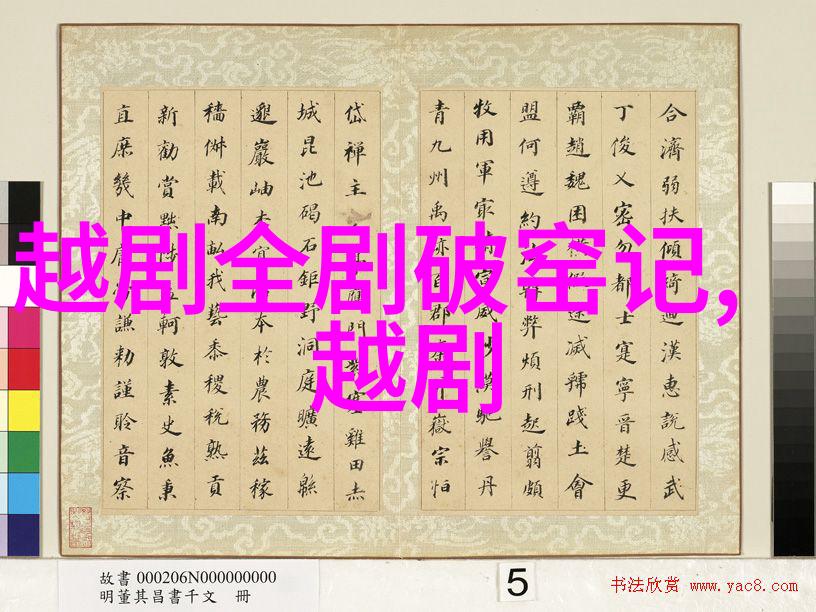 合濟弱扶傾綺迴漢惠說感武
丁俊乂密勿士寔寧晉楚更
霸趙魏困途滅虢踐土會
盟何遵約弊煩刑起翦頗
牧用軍宣威沙漠馳譽丹
青九州禹跡百郡嶽宗
岱禪主門紫塞雞田赤
城昆池碣石鉅野洞庭曠遠緜
邈巖岫本於農務茲稼
穡俶載南畝我藝黍稷稅熟貢
新勸賞黜軻敦素史魚秉
直庶幾中謙勑謹聆音察
越剧全剧破窑记,
越剧
故書 000206N000000000
明董其昌書千文 冊
5
书法欣赏 www.yac8.com